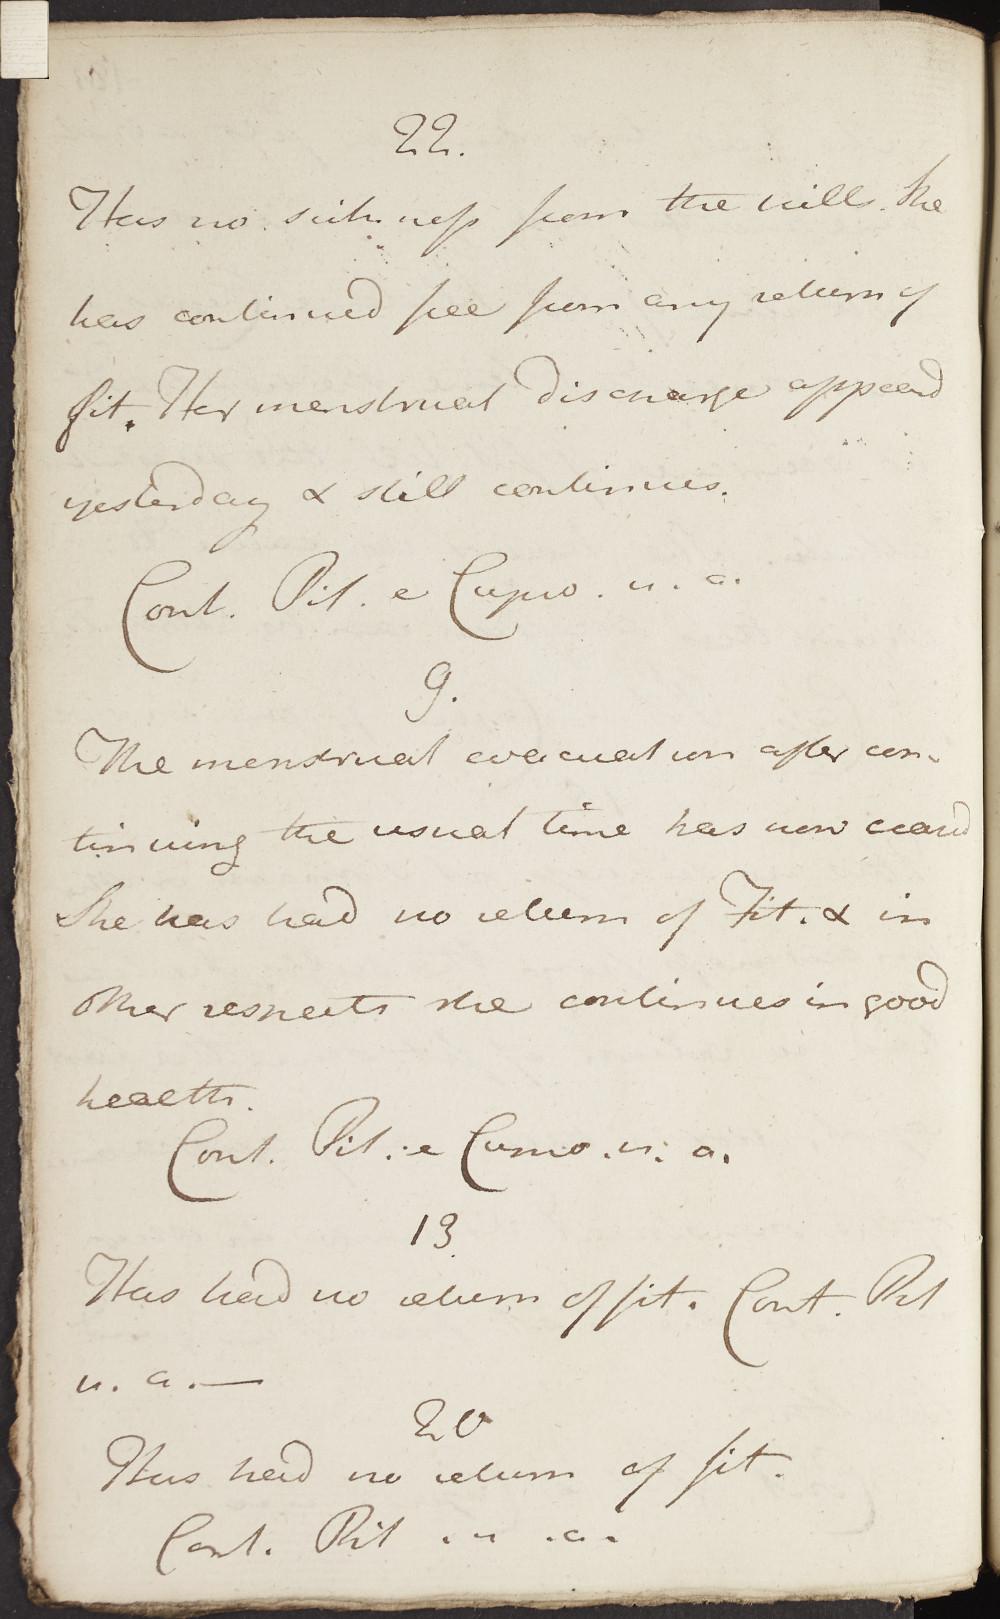 22.
Has no sickness from the pills. She
has continued free from any return of
fit. Her menstrual discharge appeard
yesterday & still continues.
Cont. Pil. e Cupro. u. a.
9.
The menstrual evacuation after con-
tinuing the usual time has now ceas'd
She has had no return of Fit. & in
other respects she continues in good
health.
Cont. Pil. e Cupro. u. a.
13
Has had no return of fit. Cont. Pil
u. a. —
20
Has had no return of fit.
Cont. Pil . u . a .